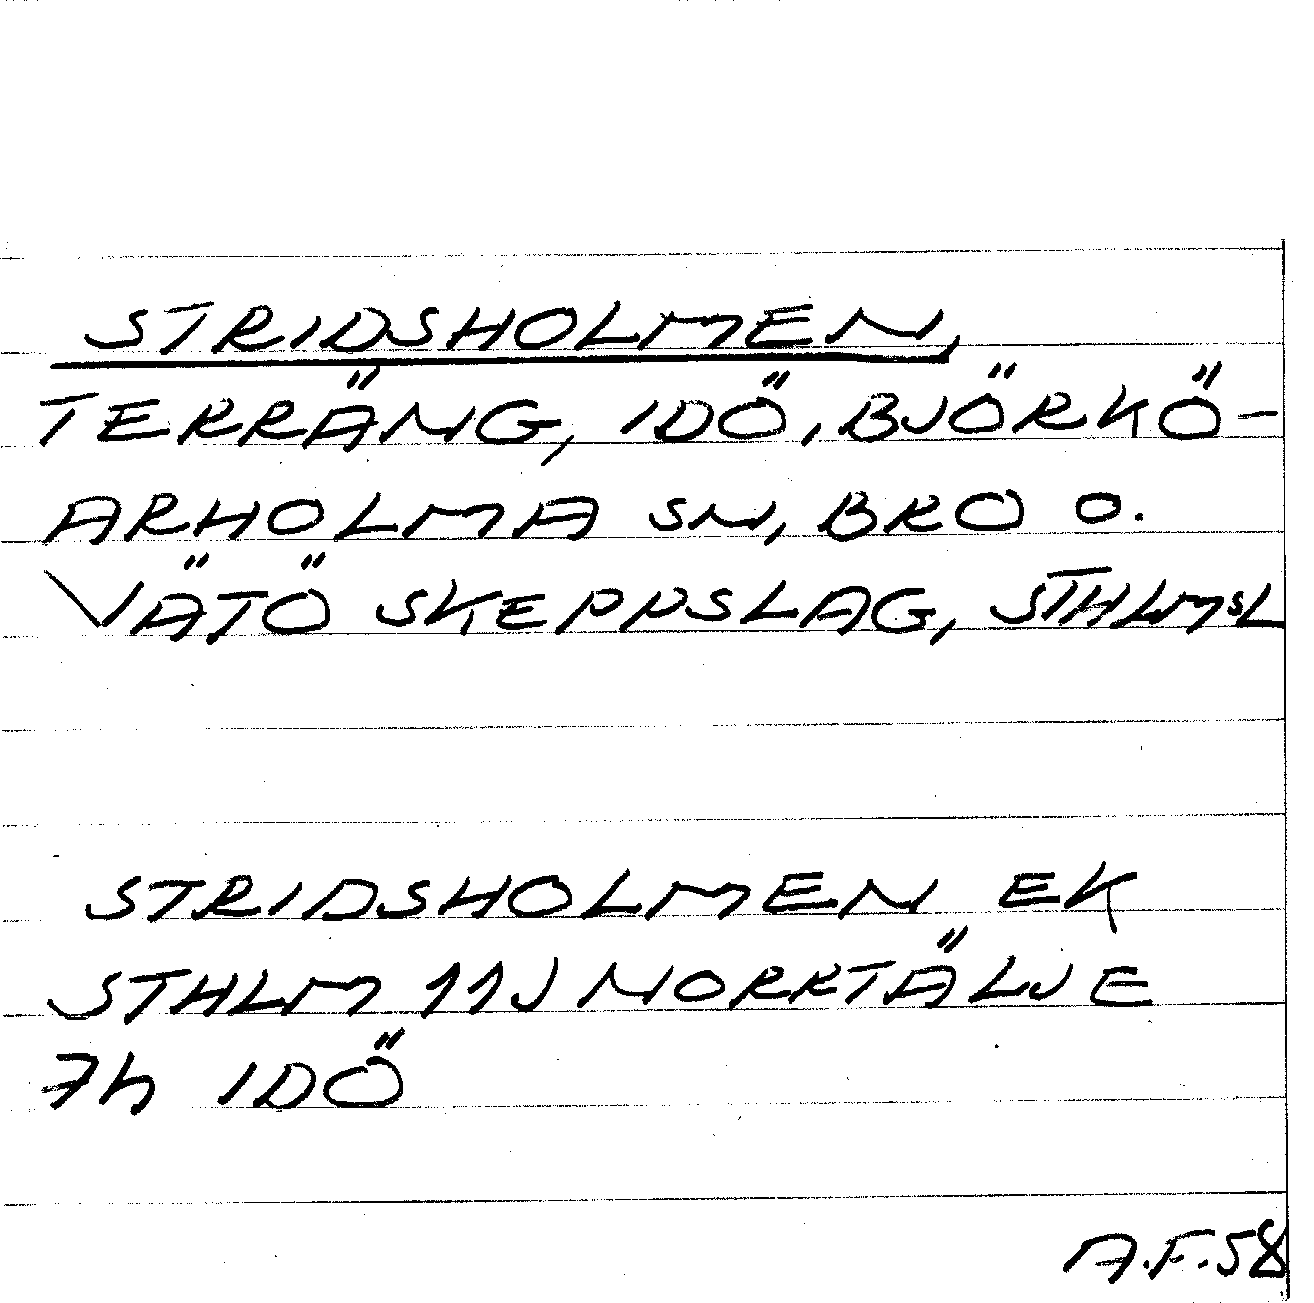 STRIDSHOLMEN,
TERRÄNG, IDÖ, BJÖRKÖ-
ARHOLMA SN, BRO O.
VÄTÖ SKEPPSLAG, STHLMSL
STRIDSHOLMEN EK
STHLM 11J NORRTÄLJE
7h IDÖ
A.F.58